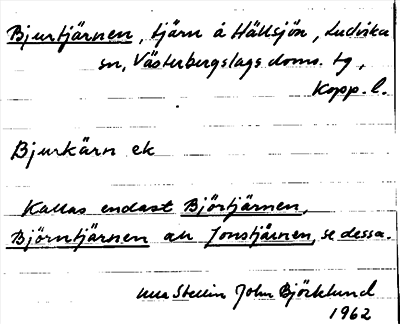 Bjurtjärnen, tjärn å Hällsjön, Ludvika
sn, Västerbergslags doms. tg,
Kopp. l.
Bjurkärn ek
Kallas endast Björtjärnen,
Björntjärnen au Jonstjärnen, se dessa.
John Björklund
1962